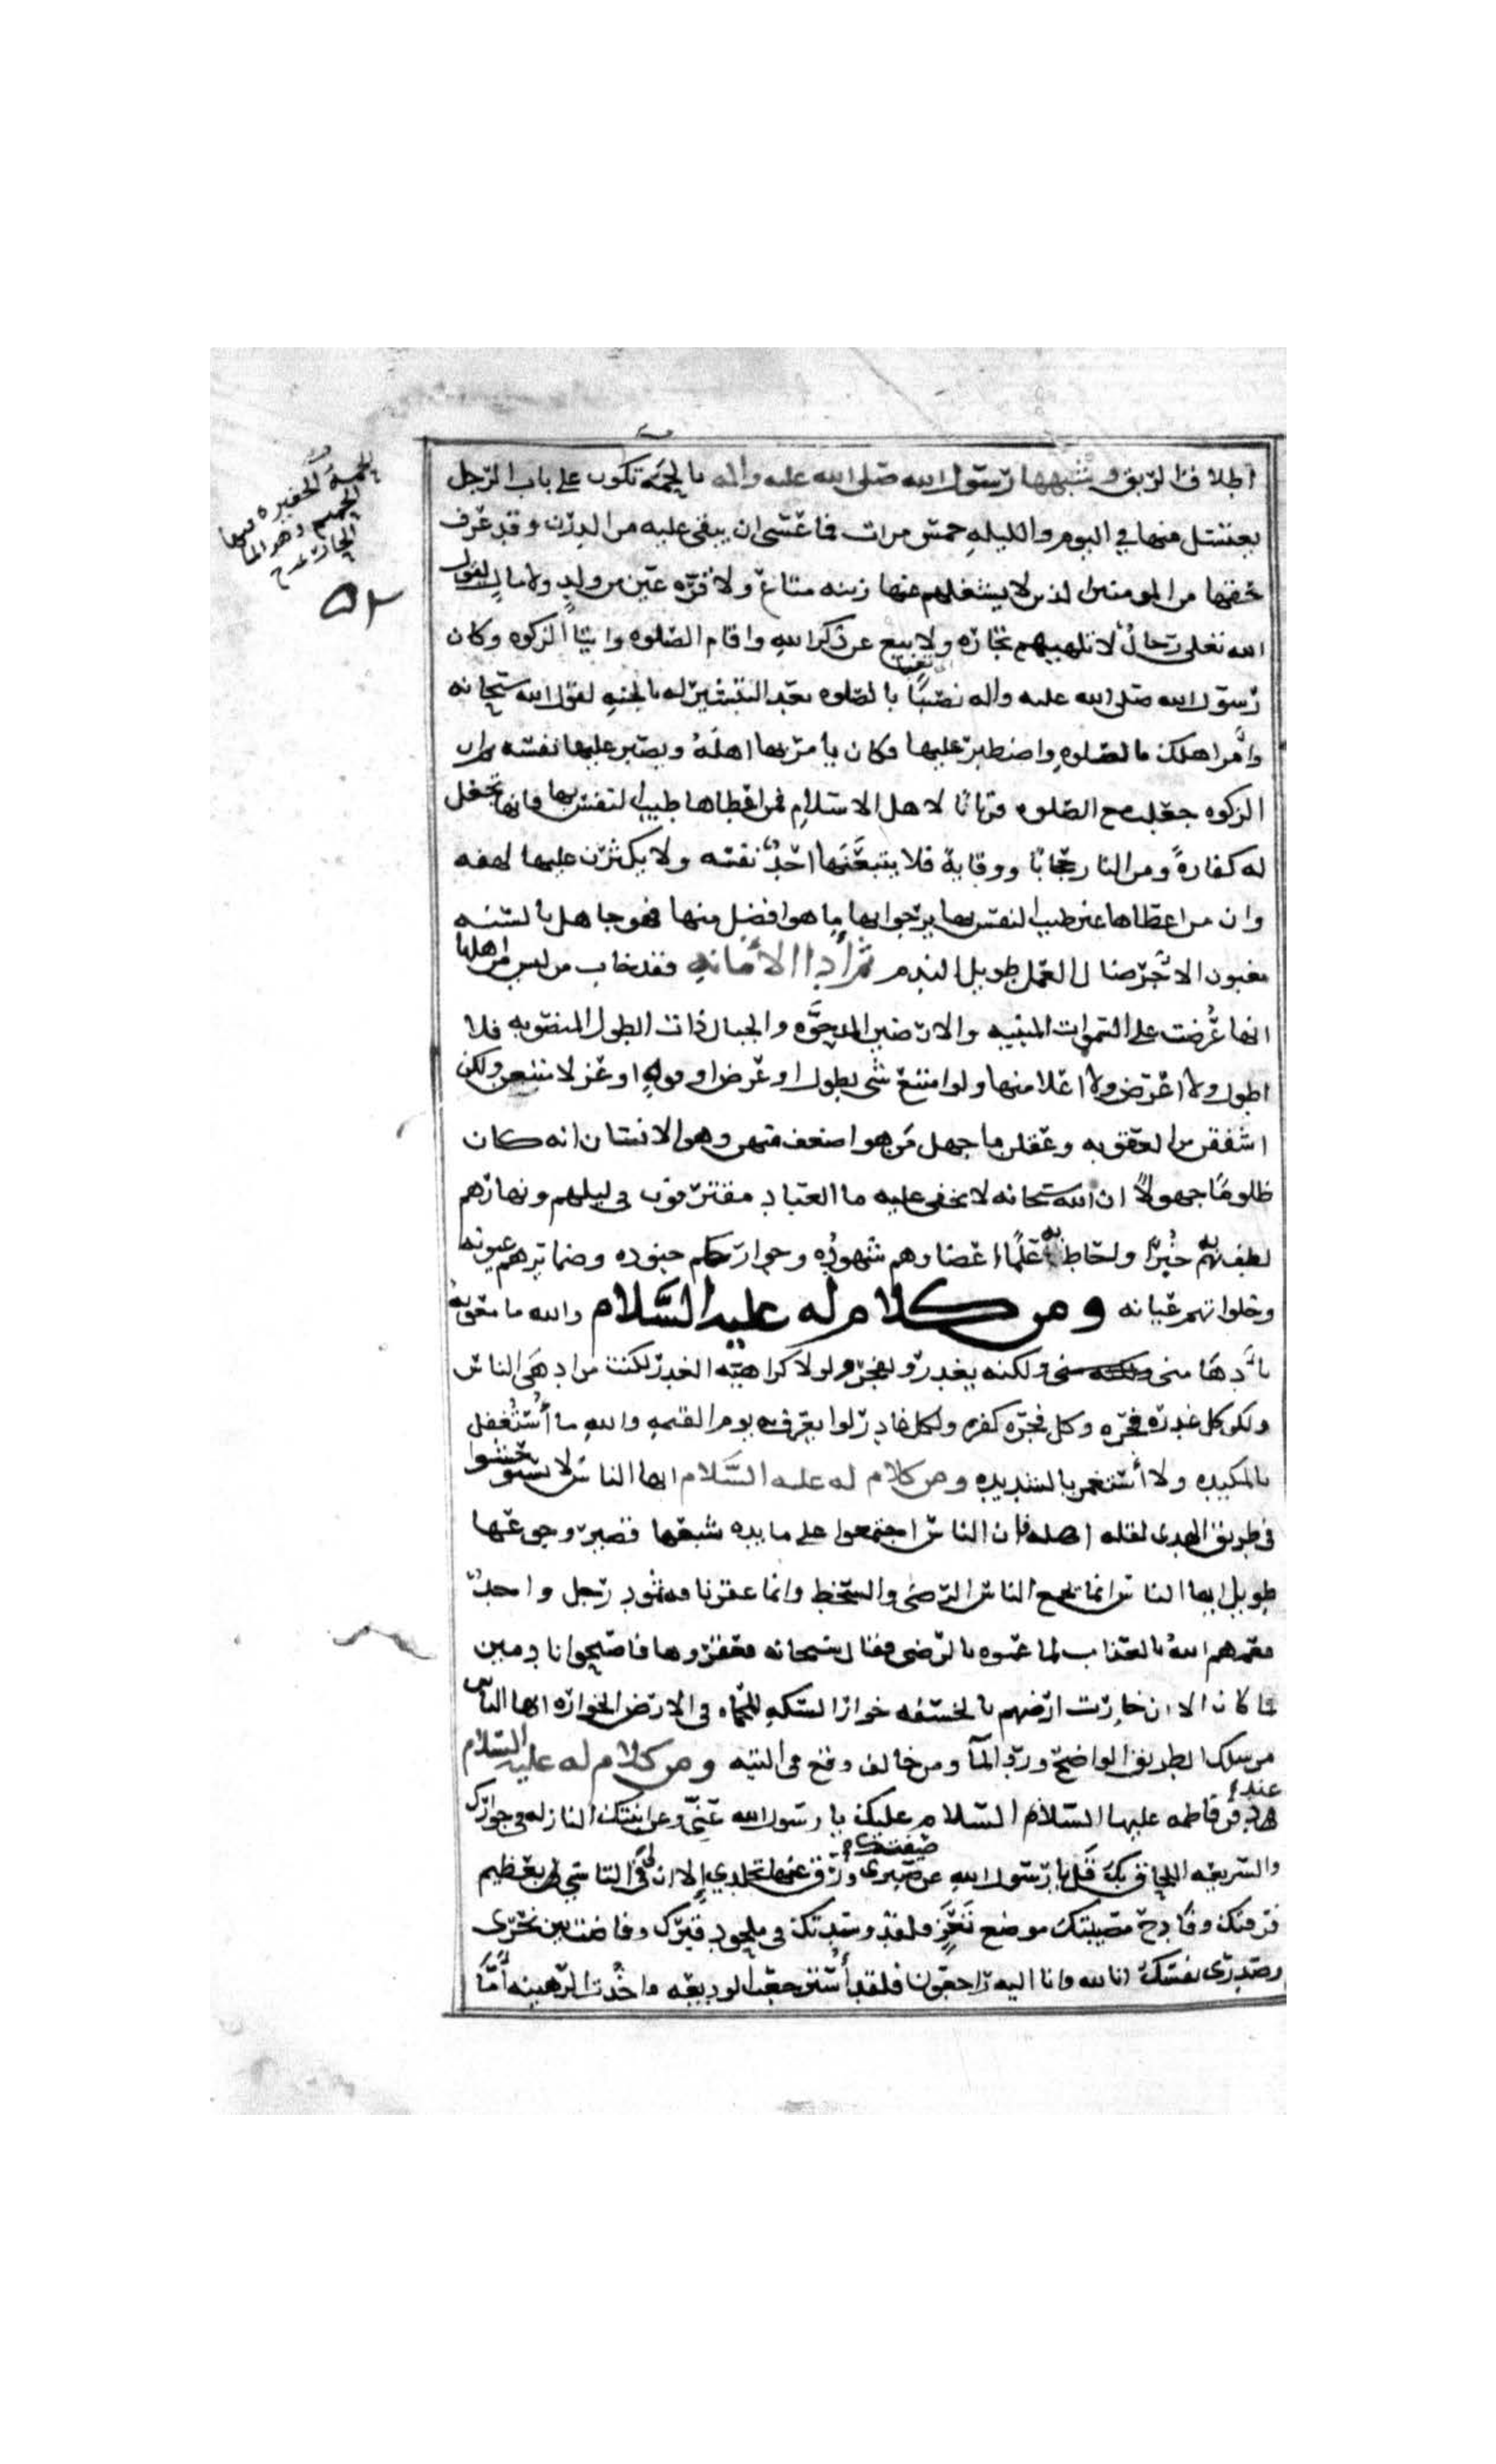 اطلاق الربق وشبهها رسول الله صلى الله عليه واله بالحمة تكون على باب الرجل
يغتسل منها في اليوم والليله خمس مرات فما عسى ان يبقى عليه من الدرن وقد عرف
حقها من المومنين الذين لا يشغلهم عنها زينه متاع ولا قرّه عين من ولدٍ ولا مالٍ لقول
الله تعلى رجالٌ لا تلهيهم تجارة ولا بيع عن ذكر الله واقام الصلوه وايتا الزكوه وكان
رسول الله صلى الله عليه واله نصبًا بالصلوه بعد التبشير له بالجنه لقول الله سبحانه
وأمر اهلك بالصلوه واصطبر عليها فكان يامر بها اهلهُ ويصبر عليها نفسه ثم ان
الزكوه جعلت مع الصلوه قربانًا لاهل الاسلام فمن اعطاها طيب النفس بها فانها تجعل
له كفارةً ومن النار حجابًا ووقاية فلا يتبعنّها احدٌ نفسه ولا يكثرن عليها لهفه
وان من اعطاها غير طيب النفس بها يرجوا بها ما هو افضل منها فهو جاهل بالسنه
مغبون الاجر ضال العمل طويل الندم ثم أدا الأمانه فقد خاب من ليس من اهلها
انها عُرضت على السموات المبنيه والارضين المدحوّه والجبال ذات الطول المنصوبه فلا
اطول ولا اعرض ولا اعلا منها ولو امتنع شى بطول او عرض او قوهٍ او عز لامتنعن ولكن
اشفقن من العقوبه وعقلن ما جهل من هو اضعف منهن وهو الانسان انه كان
ظلومًا جهولًا ان الله سبحانه لا يخفى عليه ما العباد مقترفون في ليلهم ونهارهم
لطف به خُبرًا واحاط به علمًا اعضاوهم شهوده وجوارحكم جنوده وضمايرهم عيونه
وخلواتهم عيانه ومن كلام له عليه السّلام والله ما معويه
بأدهَا منى ولكنه يغدر ويفجر ولولا كراهيّه الغدر لكنت من ادهَى الناس
ولكن كل غدره فجره وكل فجره كفره ولكل غادر لوا يعرف به يوم القيمه والله ما أُستغفل
بالمكيده ولا أُستغمز بالشديده ومن كلام له عليه السّلام ايها الناس لا تستوحشوا
فى طريق الهدى لقله اهله فان الناس اجتمعوا على مايده شبعها قصير وجوعها
طويل ايها الناس انما يجمع الناس الرضى والسخط وانما عقر ناقه ثمود رجل واحدٌ
فعمهم اللهُ بالعذاب لما عموه بالرضى فقال سبحانه فعقروها فاصبحوا نادمين
فما كان الا ان خارت ارضهم بالخسفه خوار السكه المحماه في الارض الخواره ايها الناس
من سلك الطريق الواضح ورد المآ ومن خالف وقع فى التيه ومن كلام له عليه السلام
عند
دفن فاطمه عليها السلام السلام عليك يا رسول الله عنّي وعن ابنتك النازله فى جوارك
والسريعه اللحاق بك قل يا رسول الله عن صفيتك صبرى ورق عنها تجلدي إلا ان لى فى التاسى بعظيم
فرقتك وفادح مصيبتك موضع تعزٍ فلقد وسدتك فى ملحود قبرك وفاضت بين نحرى
وصدرى نفسك انا لله وانا اليه راجعون فلقد أُسترجعت الوديعه واخُذت الرهينه أمّا
الحمة الحفيره فيها
الحميم وهو الما
الحار شرح
٥٢